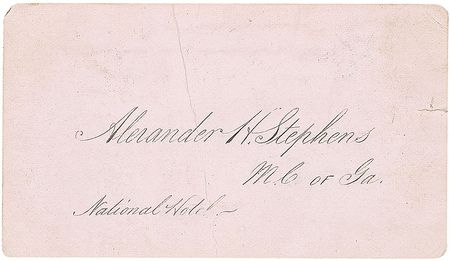 Alexander H. Stephens
M.C. of Ga.
National Hotel